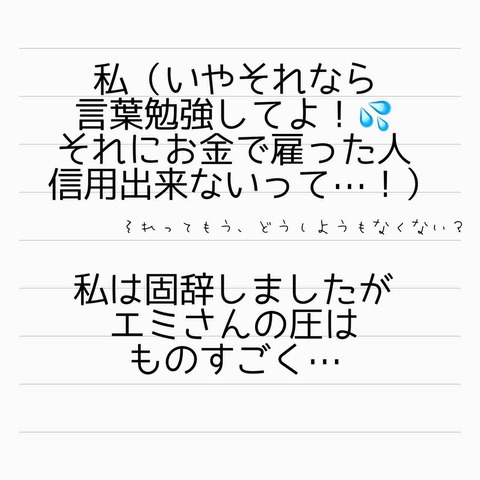 私（いやそれなら
言葉勉強してよ！💦
それにお金で雇った人
信用出来ないって…！）
それってもう、どうしようもなくない？
私は固辞しましたが
エミさんの圧は
ものすごく…